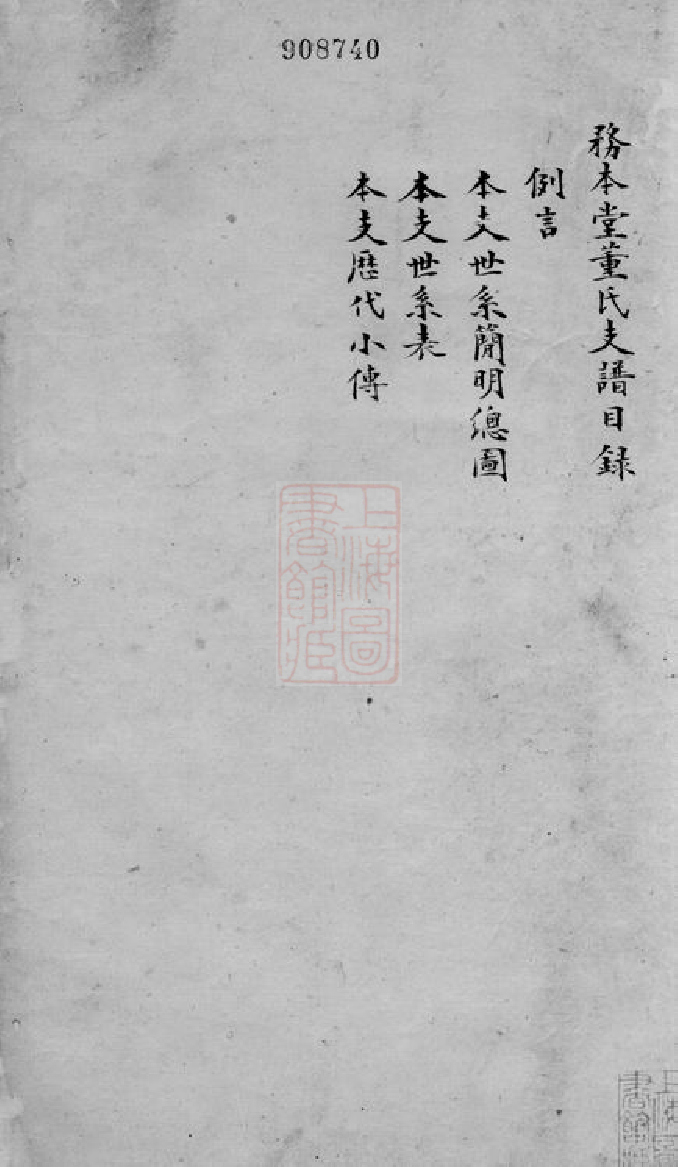 908740
務本堂董氏支譜目録
例言
本支世系簡明總圖
本支世系表
本支歷代小傳
上海圖
書館藏
上海圖
書館藏